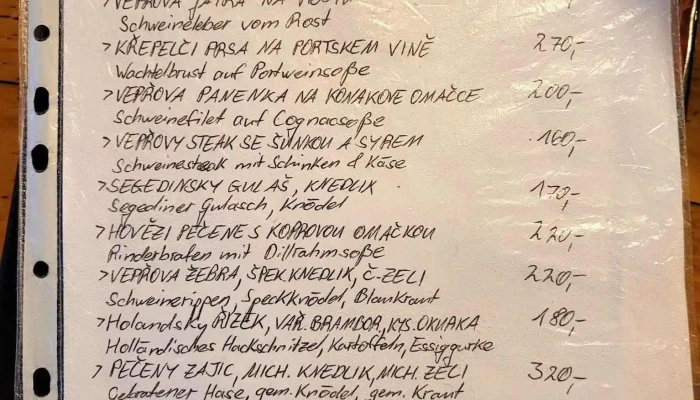 Schweineleber vom Rost
>KŘEPELČÍ PRSA NA PORTSKEM VINĚ 270,-
Wachtelbrust auf Portweinsoße
>VEPŘOVA PANENKA NA KONAKOVE OMAČCE 200,-
Schweinefilet auf Cognacsoße
>VEPŘOVY STEAK SE ŠUNKOU A SYREM 160,-
Schweinesteak mit Schinken & Käse
>SEGEDINSKY GULAŠ, KNEDLIK 170,-
Segediner Gulasch, Knödel
>HOVĚZI PEČENE S KOPROVOU OMAČKOU 220,-
Rinderbraten mit Dillrahmsoße
>VEPŘOVA ŽEBRA, ŠPEK.KNEDLIK, Č-ZELI 220,-
Schweinerippen, Speckknödel, Blaukraut
>Holandsky ŘIZEK, VAŘ. BRAMBOR, KYS. OKURKA 180,-
Holländisches Hackschnitzel, Kartoffeln, Essiggurke
>PEČENY ZAJIC, MICH. KNEDLIK, MICH. ZELI 320,-
Gebratener Hase, gem. Knödel, gem. Kraut